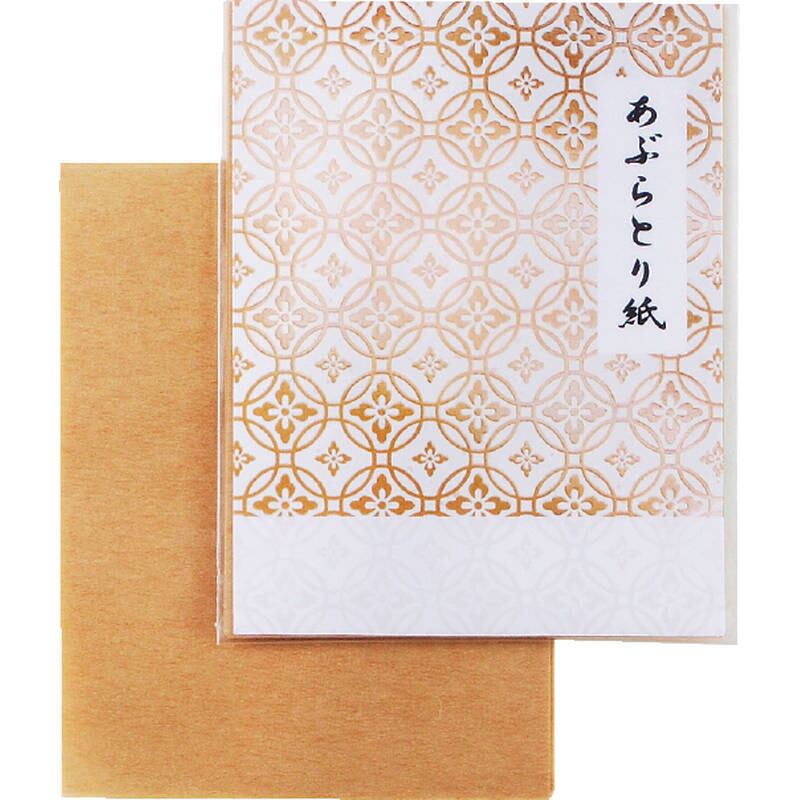 あぶらとり紙